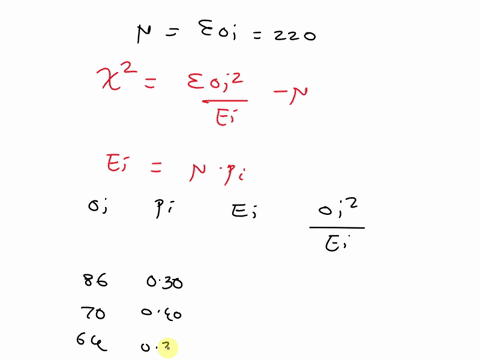 N = Σoi = 220
χ² = Σoi²/Ei - N
Ei = N·pi
oi pi Ei oi²/Ei
86 0.30
70 0.40
64 0.3